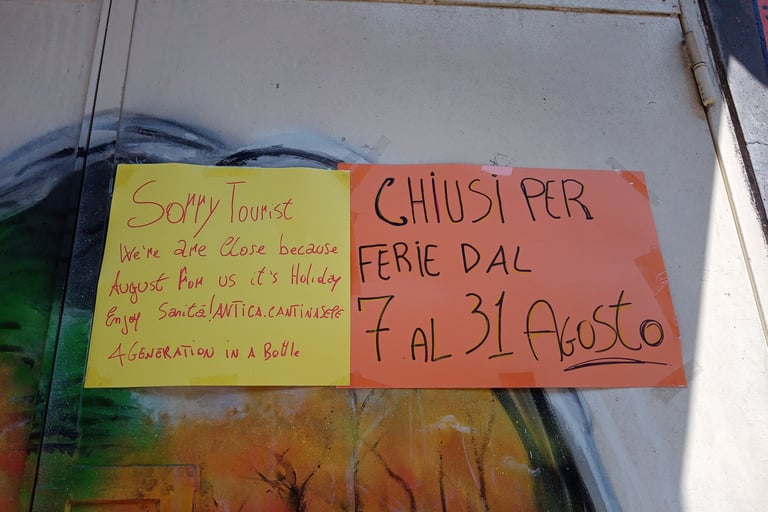 Sorry Tourist
We're are Close because
August For us it's Holiday
Enjoy Sanità! ANTICA.CANTINASEPE
4 GENERATION IN A BOttle
CHIUSI PER
FERIE DAL
7 AL 31 AGOSTO